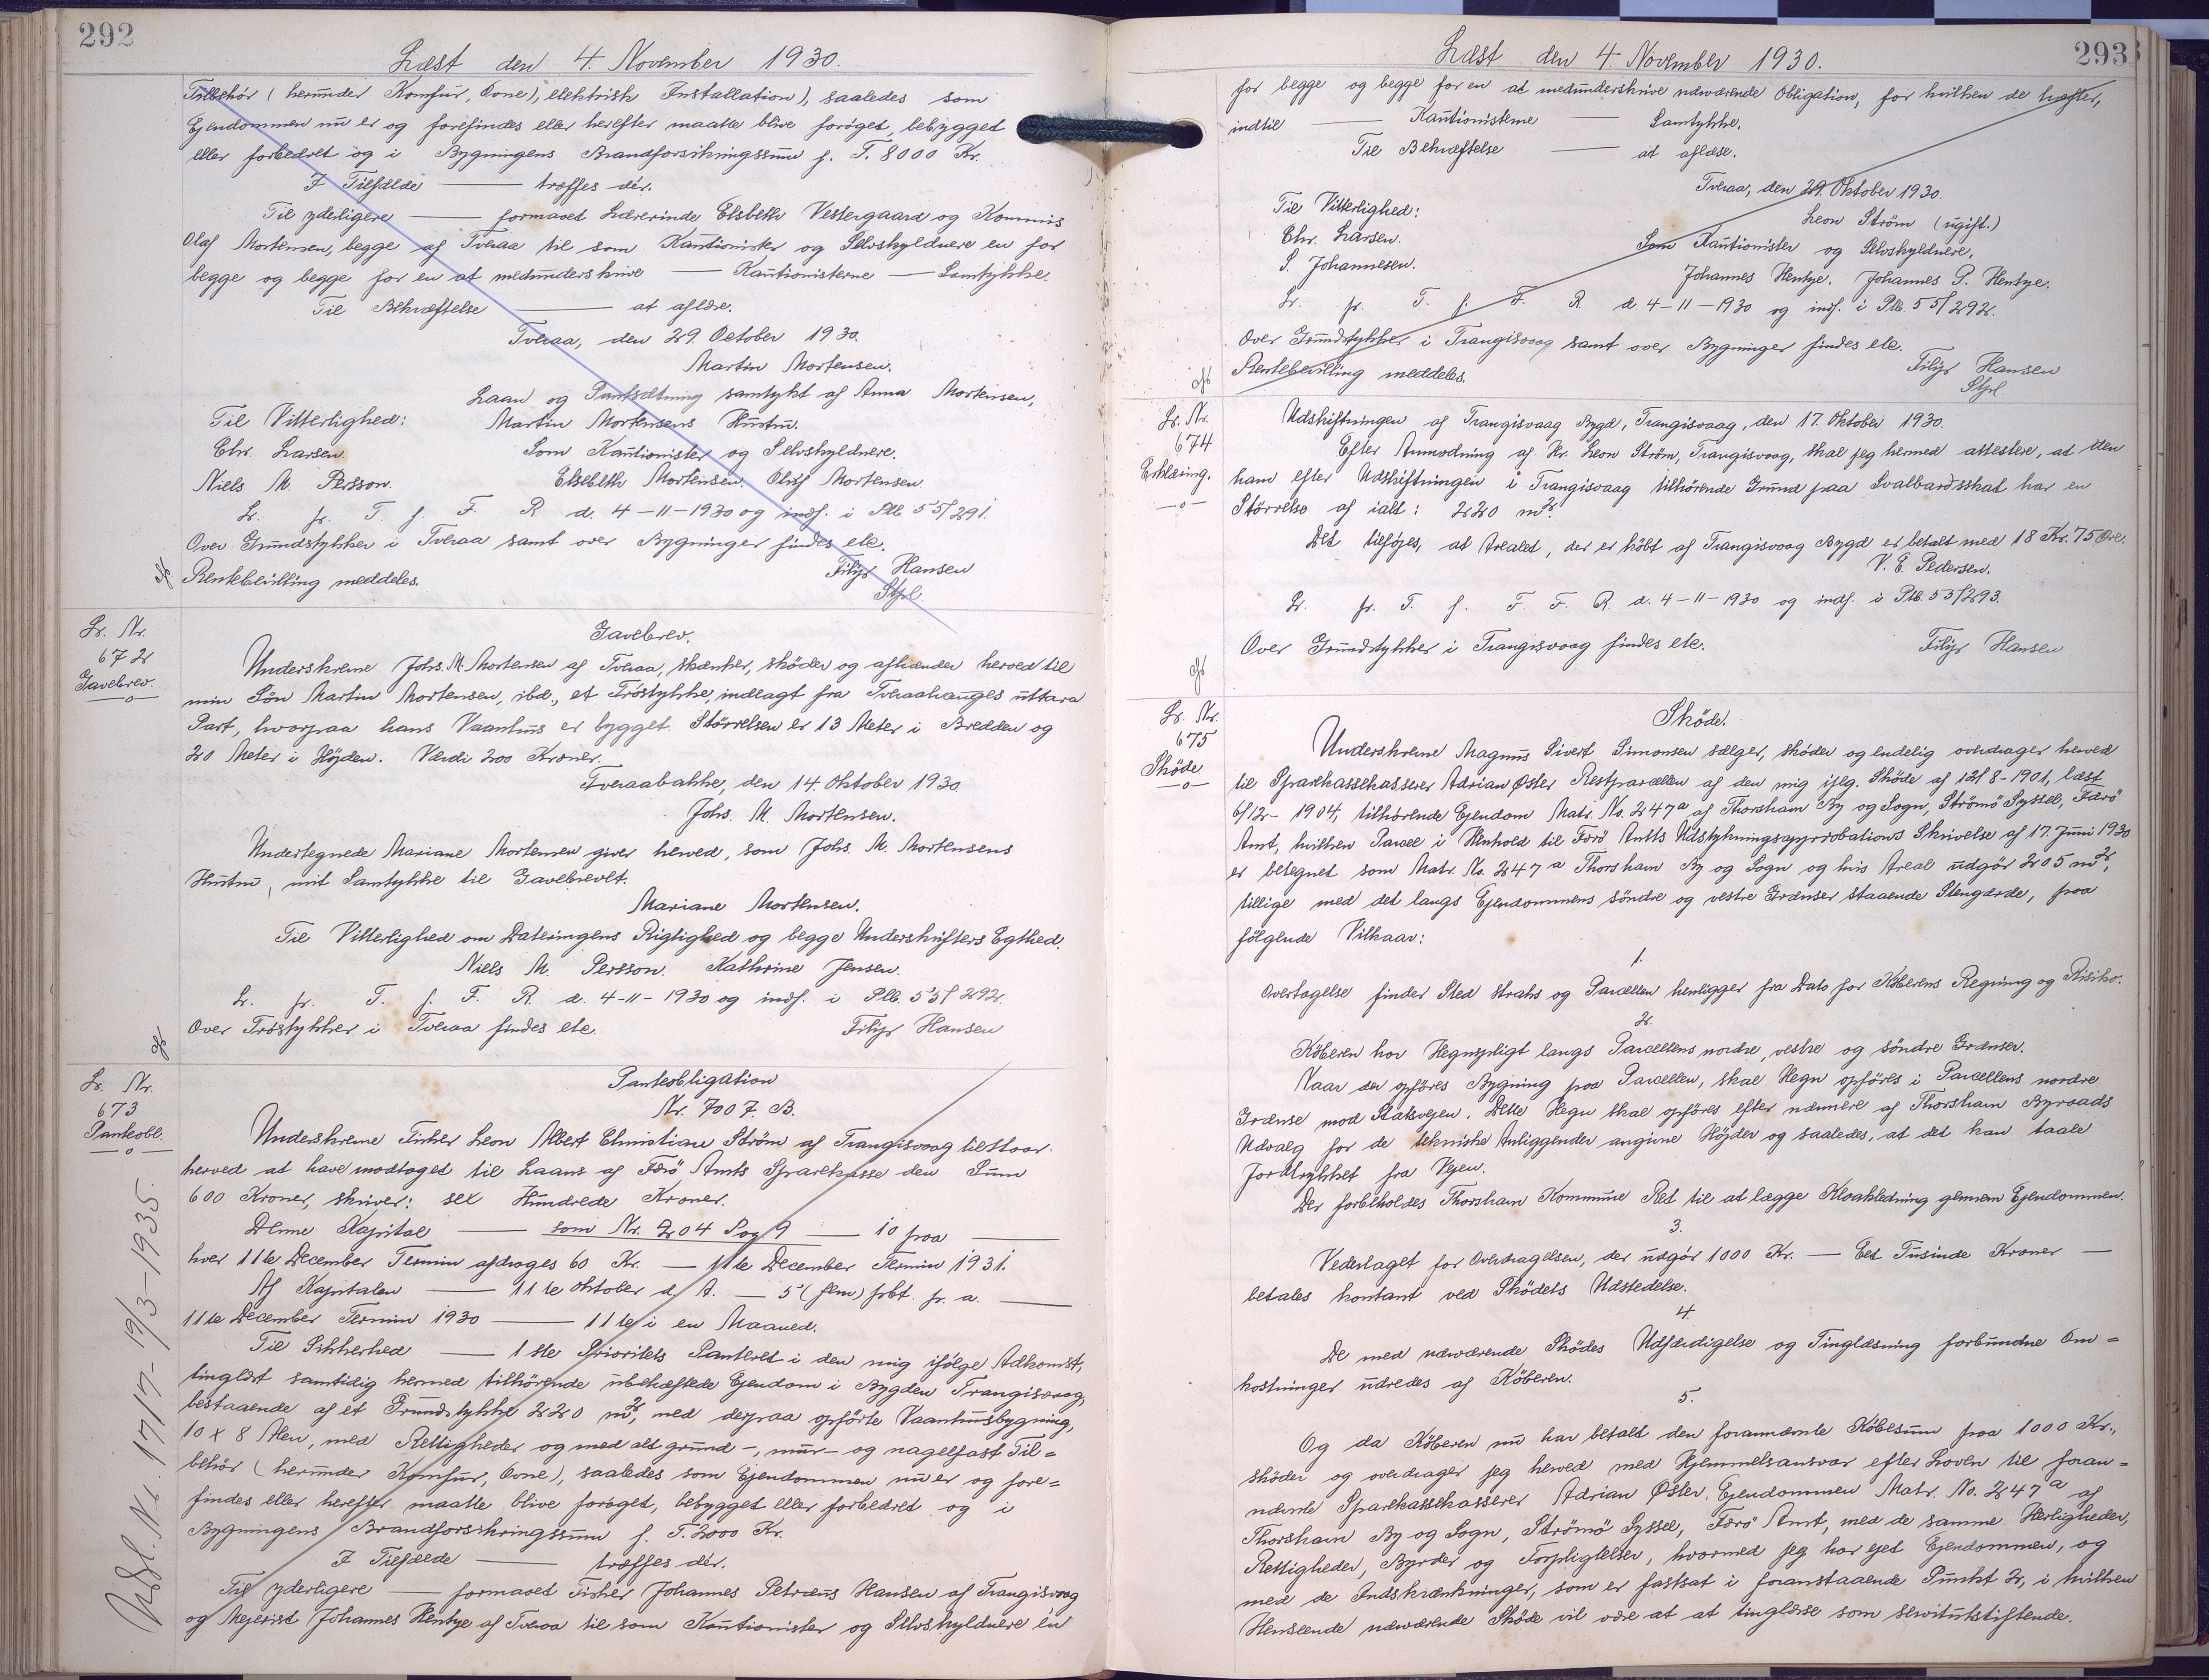 292
Læst den 4. November 1930.
Tilbehör (herunder Komfur, Ovne), elektrisk Installation), saaledes som
Ejendommen nu er og forefindes eller herefter maatte blive foröget, bebygget
eller forbedret og i Bygningens Brandforsikringssum f. T. 8000 Kr.
I Tilfælde — træffes dér.
Til yderligere — formaaet Lærerinde Elsbeth Vestergaard og Kommis
Olaf Mortensen, begge af Tveraa til som Kautionister og Selvskyldnere en for
begge og begge for en at medunderskrive — Kautionisterne — Samtykke.
Til Bekræftelse — at aflæse.
Tveraa, den 29. October 1930.
Martin Mortensen.
Laan og Pantsætning samtykt af Anna Mortensen,
Til Vitterlighed: Martin Mortensens Hustru.
Chr. Larsen. Som Kautionister og Selvskyldnere.
Niels M. Persson. Elsebeth Mortensen. Oluf Mortensen.
Lr. fr. T. f. F. R. d. 4-11-1930 og indf. i Ptb. 55/291.
Over Grundstykker i Tveraa samt over Bygninger findes etc.
Rentebevilling meddeles. Filip Hansen
Stpl.
Lr. Nr.
672
Gavebrev.
—o—
Gavebrev.
Underskrevne Johs. M. Mortensen af Tveraa, skænker, skøder og afhænder herved til
min Sön Martin Mortensen, ibd., et Tröstykke, indlagt fra Tveraahauges uttara
Part, hvorpaa hans Vaanhus er bygget. Störrelsen er 13 Meter i Bredden og
20 Meter i Höjden. Værdi 200 Kroner.
Tveraabakke, den 14. Oktober 1930.
Johs. M. Mortensen.
Undertegnede Mariane Mortensen giver herved, som Johs. M. Mortensens
Hustru, mit Samtykke til Gavebrevet.
Mariane Mortensen.
Til Vitterlighed om Dateringens Rigtighed og begge Underskrifters Ægthed.
Niels M. Persson. Kathrine Jensen.
Lr. fr. T. f. F. R. d. 4-11-1930 og indf. i Ptb. 55/292.
Over Tröstykker i Tveraa findes etc. Filip Hansen
Lr. Nr.
673
Panteobl.
—o—
Udsl. Nr. 1717 - 19/3-1935.
Panteobligation
Nr. 7007. B.
Underskrevne Fisker Leon Albert Christian Ström af Trangisvaag tilstaar
herved at have modtaget til Laans af Færö Amts Sparekasse den Sum
600 Kroner, skriver: sex Hundrede Kroner.
Denne Kapital — som Nr. 204 Pag 9 — io paa —
hver 11te December Termin afdrages 60 Kr. — 11te December Termin 1931.
Af Kapitalen — 11te Oktober d. A. — 5 (fem) prbt. p. a. —
11te December Termin 1930 — 11te i en Maaned.
Til Sikkerhed — 1ste Prioritets Panteret i den mig ifölge Adkomst,
tinglæst samtidig hermed tilhörende ubehæftede Ejendom i Bygden Trangisvaag,
bestaaende af et Grundstykke 220 m², med derpaa opförte Vaanhusbygning,
10 x 8 Alen, med Rettigheder og med alt grund-, mur- og nagelfast Til=
behör (herunder Komfur, Ovne), saaledes som Ejendommen nu er og fore=
findes eller herefter maatte blive foröget, bebygget eller forbedret og i
Bygningens Brandforsikringssum f. T. 2000 Kr.
I Tilfælde — træffes dér.
Til yderligere — formaaet Fisker Johannes Petræus Hansen af Trangisvaag
og Mejerist Johannes Hentze af Tveraa til som Kautionister og Selvskyldnere en
293
Læst den 4. November 1930.
for begge og begge for en at medunderskrive nærværende Obligation, for hvilken de hæfter,
indtil — Kautionisterne — Samtykke.
Til Bekræftelse — at aflæse.
Tveraa, den 29. Oktober 1930.
Til Vitterlighed: Leon Ström (ugift.)
Chr. Larsen. Som Kautionister og Selvskyldnere.
S. Johannesen. Johannes Hentze. Johannes P. Hentze.
Lr. fr. T. f. F. R. d. 4-11-1930 og indf. i Ptb. 55/292.
Over Grundstykker i Trangisvaag samt over Bygninger findes etc.
Rentebevilling meddeles. Filip Hansen
Stpl
Lr. Nr.
674
Erklæring.
—o—
Udskiftningen af Trangisvaag Bygd, Trangisvaag, den 17. Oktober 1930.
Efter Anmodning af Hr. Leon Ström, Trangisvaag, skal jeg hermed attestere, at den
ham efter Udskiftningen i Trangisvaag tilhörende Grund paa Svalbardsskat har en
Störrelse af ialt: 220 m².
Det tilföjes, at Arealet, der er köbt af Trangisvaag Bygd er betalt med 18 Kr. 75 Øre.
V. E. Pedersen.
Lr. fr. T. f. F. F. R. d. 4-11-1930 og indf. i Ptb. 55/293.
Over Grundstykker i Trangisvaag findes etc. Filip Hansen
Lr. Nr.
675
Sköde
—o—
Sköde.
Underskrevne Magnus Sivert Simonsen sælger, sköder og endelig overdrager herved
til Sparekassekasserer Adrian Øster Restparcellen af den mig iflg. Sköde af 12/8-1901, læst
6/12-1904, tilhörende Ejendom Matr. No. 247a af Thorshavn By og Sogn, Strömö Syssel, Færö
Amt, hvilken Parcel i Henhold til Færö Amts Udstykningsapprobations Skrivelse af 17. Juni 1930
er betegnet som Matr. No. 247a Thorshavn By og Sogn og hvis Areal udgör 205 m²,
tillige med det langs Ejendommens söndre og vestre Grænser staaende Stengærde, paa
fölgende Vilkaar:
1.
Overtagelse finder Sted straks og Parcellen henligger fra Dato for Køberens Regning og Risiko.
2.
Køberen har Hegnspligt langs Parcellens nordre, vestre og söndre Grænser.
Naar der opföres Bygning paa Parcellen, skal Hegn opföres i Parcellens nordre
Grænse mod Statsvejen. Dette Hegn skal opföres efter nærmere af Thorshavn Byraads
Udvalg for de tekniske Anliggender angivne Höjder og saaledes, at det kan taale
Jordtrykket fra Vejen.
Der forbeholdes Thorshavn Kommune Ret til at lægge Kloakledning gennem Ejendommen.
3.
Vederlaget for Overdragelsen, der udgör 1000 Kr. — Eet Tusinde Kroner —
betales kontant ved Sködets Udstedelse.
4.
De med nærværende Skødes Udfærdigelse og Tinglæsning forbundne Om=
kostninger udredes af Köberen.
5.
Og da Köberen nu har betalt den forannævnte Köbesum paa 1000 Kr.,
sköder og overdrager jeg herved med Hjemmelsansvar efter Loven til foran=
nævnte Sparekassekasserer Adrian Øster Ejendommen Matr. No. 247a af
Thorshavn By og Sogn, Strömö Syssel, Færö Amt, med de samme Herligheder,
Rettigheder, Byrder og Forpligtelser, hvormed jeg har ejet Ejendommen, og
med de Indskrænkninger, som er fastsat i foranstaaende Punkt 2, i hvilken
Henseende nærværende Sköde vil være at at tinglæse som servitutstiftende.